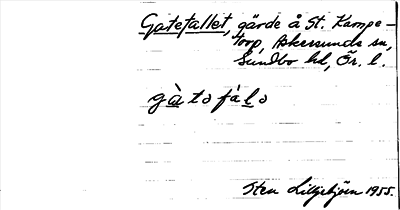 Gatefallet, gärde å St. Kampe-
torp, Askersunds sn,
Sundbo hd, Ör. l.
gàtɔ fálɔ
Sten Liljebjörn 1955.